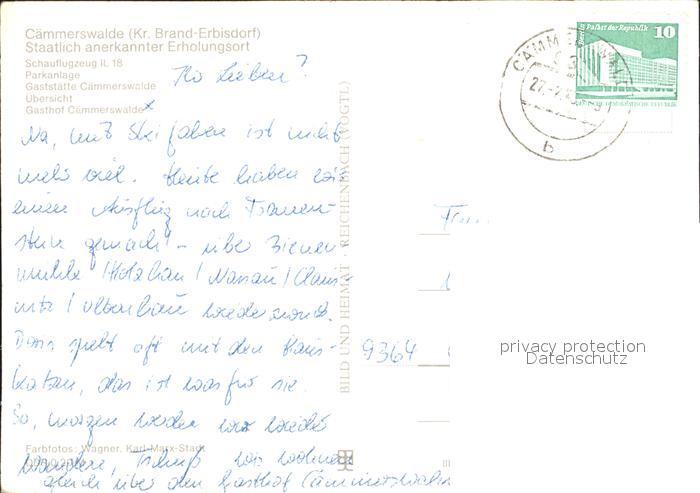 Cämmerswalde (Kr. Brand-Erbisdorf)
Staatlich anerkannter Erholungsort
Schauflugzeug IL 18
Parkanlage
Gaststätte Cämmerswalde
Übersicht
Gasthof Cämmerswalde x
Ihr Lieben!
Na, mit Skifahren ist nicht
mehr viel. Heute haben wir
einen Ausflug nach Frauen-
stein gemacht - über Bienen-
mühle / Holzhau / Nassau / Claus-
nitz /
spielt oft mit den Haus-
katzen, das ist was für sie.
So, morgen werden wir wieder
wandern, Tschüß wir wohnen
gleich über den Gasthof Cämmerswalde
Farbfotos: Wagner, Karl-Marx-Stadt
BILD UND HEIMAT · REICHENBACH (VOGTL)
Berlin, Palast der Republik
10
DEUTSCHE DEMOKRATISCHE REPUBLIK
b
9364
privacy protection
Datenschutz